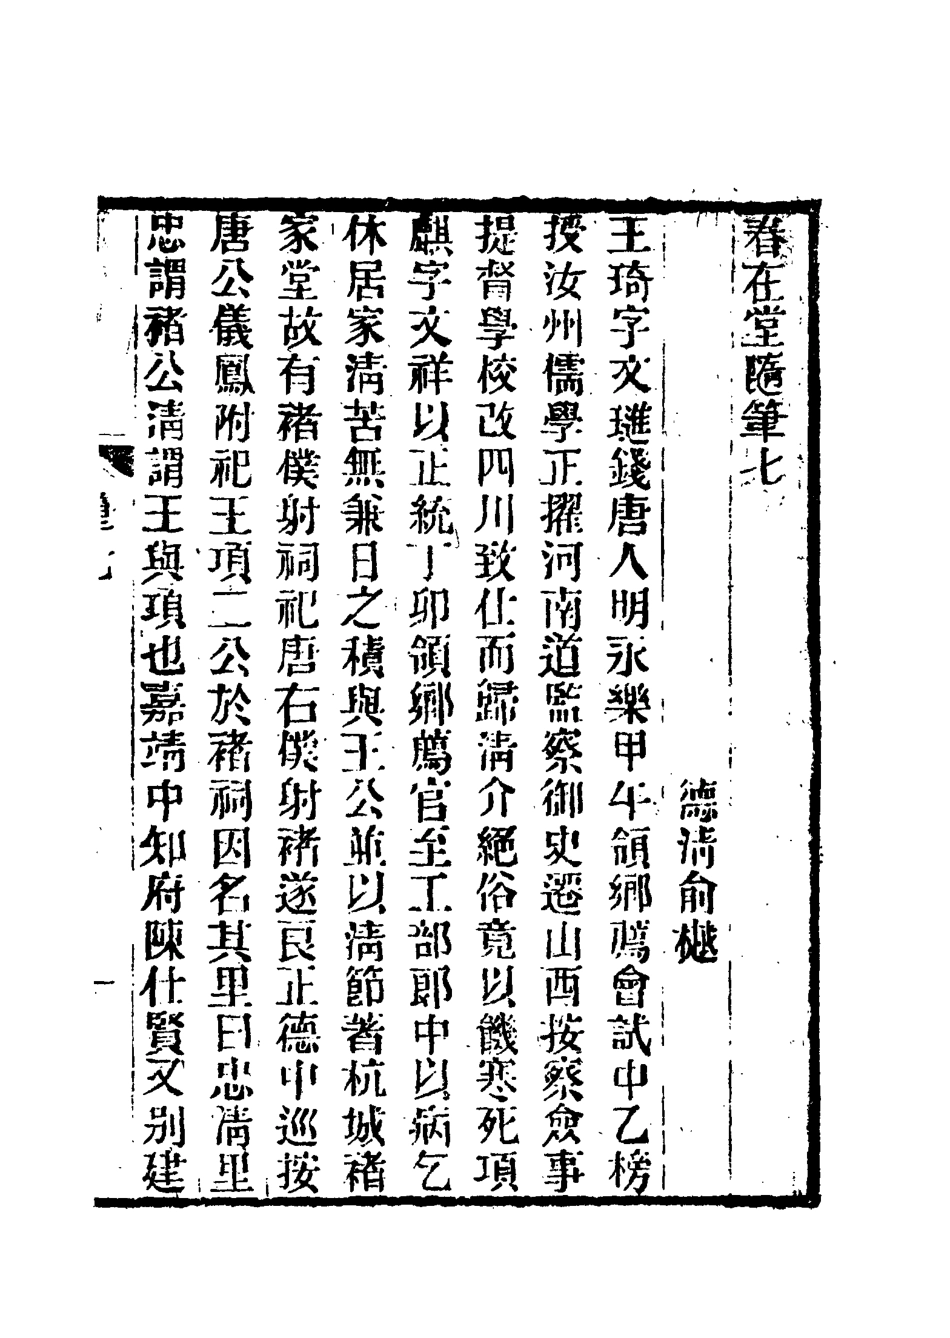 春在堂隨筆七
德清俞樾
王琦字文璡錢唐人明永樂甲午領鄉薦會試中乙榜
授汝州儒學正擢河南道監察御史遷山西按察僉事
提督學校改四川致仕而歸清介絕俗竟以饑寒死項
麒字文祥以正統丁卯領鄉薦官至工部郎中以病乞
休居家清苦無兼日之積與王公並以清節著杭城褚
家堂故有褚僕射祠祀唐右僕射褚遂良正德中巡按
唐公儀鳳附祀王項二公於褚祠因名其里曰忠清里
忠謂褚公清謂王與項也嘉靖中知府陳仕賢又別建
筆七
一